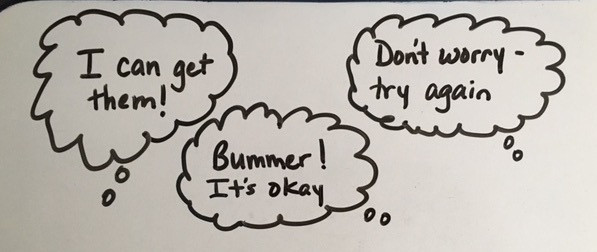 I can get
them!
Bummer!
It's okay
Don't worry -
try again